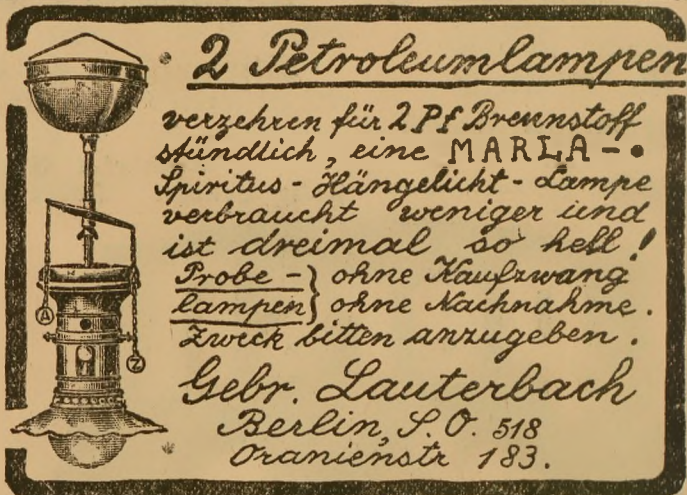 2 Petroleumlampen
verzehren für 2 Pf Brennstoff
stündlich, eine MARLA-
Spiritus-Hängelicht-Lampe
verbraucht weniger und
ist dreimal so hell!
Probe-} ohne Kaufzwang
lampen} ohne Nachnahme.
Zweck bitten anzugeben.
Gebr. Lauterbach
Berlin, S.O. 518
Oranienstr 183.
A
Z